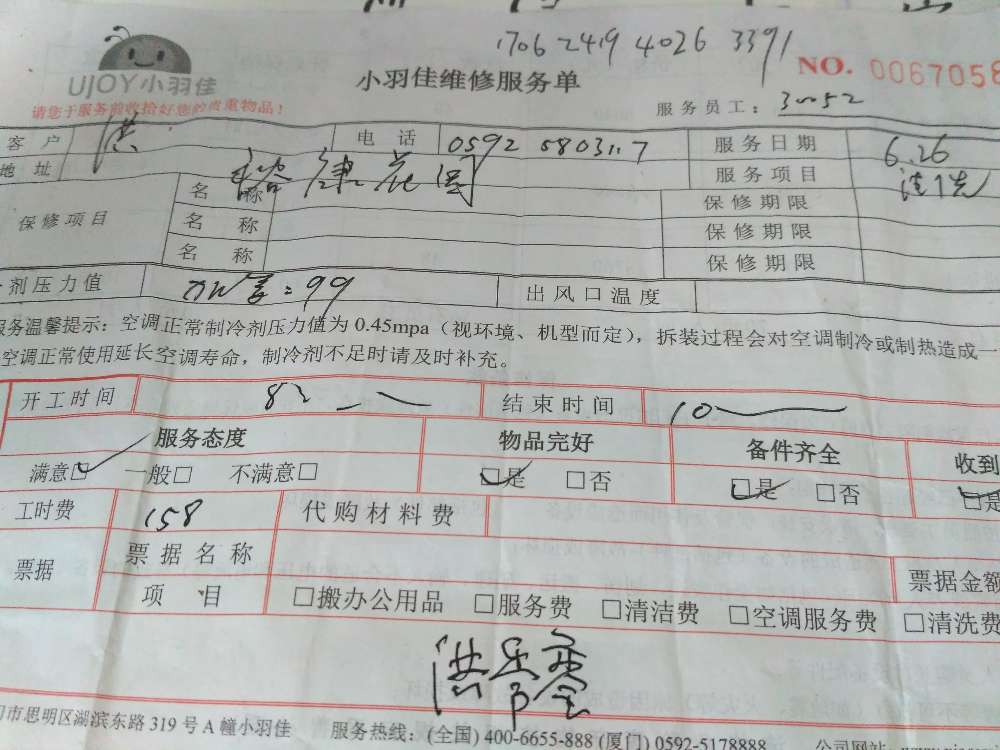 1706 2419 4026 3391
UJOY小羽佳
小羽佳维修服务单
NO. 0067058
请您于服务前收拾好您的贵重物品！
服务员工：30052
客 户 洪 电 话 0592 5803117 服务日期 6.26
地 址 裕康花园 服务项目 清洗
保修项目 名 称 保修期限
名 称 保修期限
名 称 保修期限
剂压力值 99 出风口温度
服务温馨提示：空调正常制冷剂压力值为0.45mpa（视环境、机型而定），拆装过程会对空调制冷或制热造成一
空调正常使用延长空调寿命，制冷剂不足时请及时补充。
开工时间 结束时间 10
服务态度 物品完好 备件齐全 收到
满意□ 一般□ 不满意□ □是 □否 □是 □否 □是
工时费 158 代购材料费
票据 票据名称 票据金额
项 目 □搬办公用品 □服务费 □清洁费 □空调服务费 □清洗费
洪
门市思明区湖滨东路319号A幢小羽佳 服务热线：(全国) 400-6655-888 (厦门) 0592-5178888 公司网站: